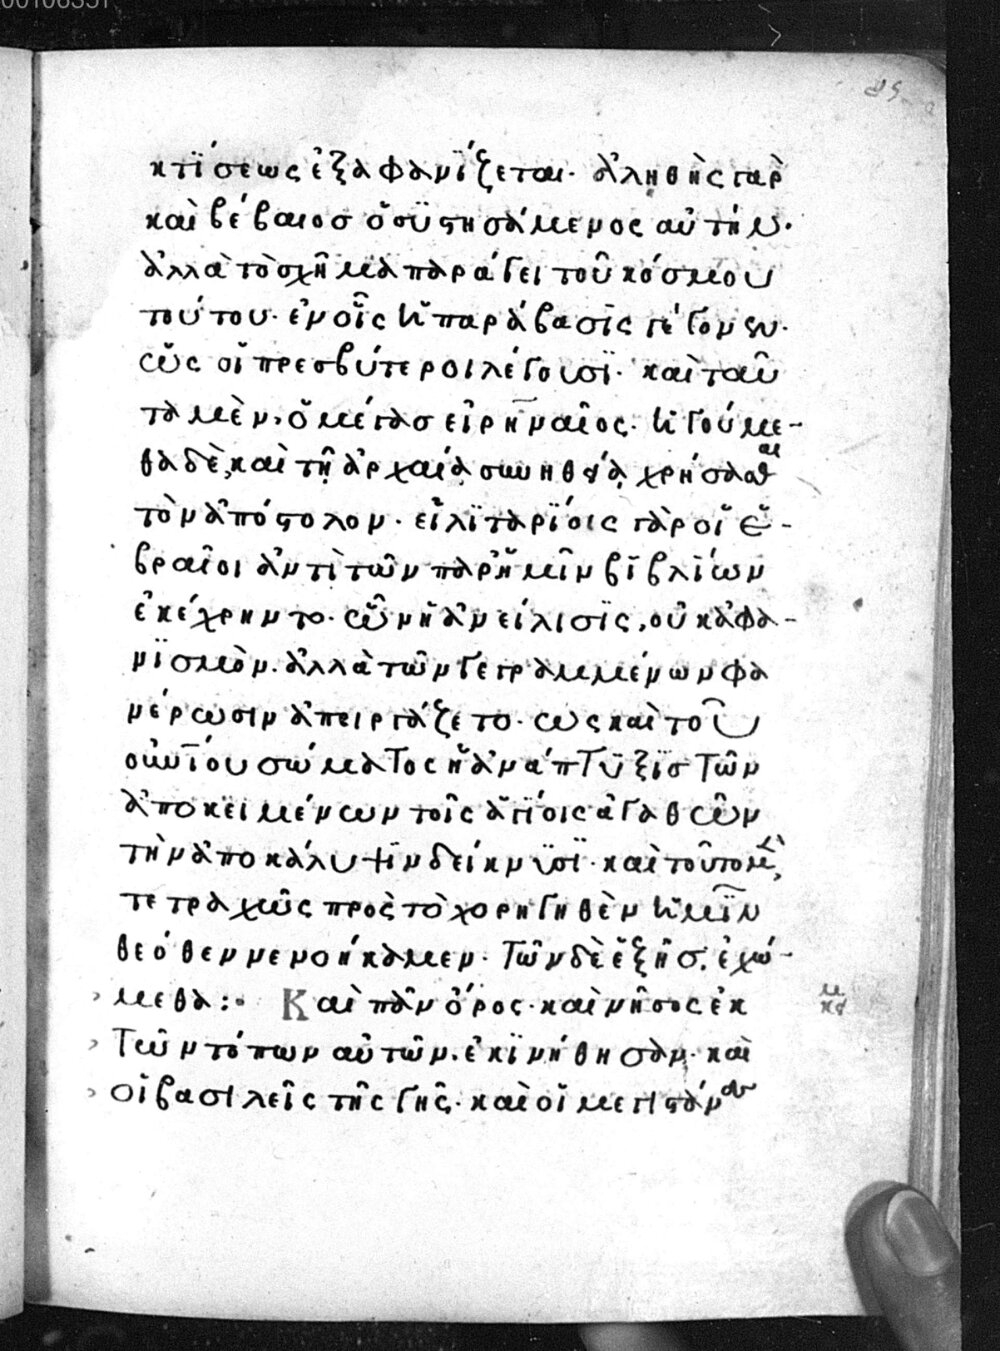 κτΐσεως ἐξαφανΐζεται· ἀληθὴς γαρ
καὶ βέβαιοσ ὁ συστησάμενος αὐτήν·
ἀλλὰ τὸ σχῆμα παράγει τοῦ κόσμου
τούτου· ἐν οἷς ἡ παράβασϊς γέγονεν·
ὡς οἱ πρεσβύτεροι λέγουσϊ· καὶ ταῦ
τα μὲν, ὁ μέγασ εἰρηναῖος· ἡγούμε-
θα δὲ, καὶ τῆ ἀρχαία συνηθεία χρήσασθαι
τὸν ἀπόστολον· εἱλϊταρΐοις γὰρ οἱ ἑ-
βραῖοι ἀντὶ τῶν παρ' ἡμῖν βϊβλΐων
ἐκέχρηντο· ὧν ἡ ἀνείλισϊς, οὐκ ἀφα-
νϊσμὸν· ἀλλὰ τῶν γεγραμμένων φα
νέρωσιν ἀπειργάζετο· ὡς καὶ τοῦ
οὐνίου σώματος ἡ ἀνάπτυξϊσ τῶν
ἀποκειμένων τοῖς ἁγΐοις ἀγαθῶν
τὴν ἀποκάλυψϊν δείκνυσϊ· καὶ τοῦτο μὲν,
τετραχῶς πρὸς τὸ χορηγηθὲν ἡμῖν
θεόθεν νενοήκαμεν· τῶν δὲ ἑξῆσ, ἐχώ-
μεθα:· Καὶ πᾶν ὄρος· καὶ νῆσος ἐκ
τῶν τόπων αὐτῶν, ἐκϊνήθησαν· καὶ
οἱ βασιλεῖς τῆς γῆς· καὶ οἱ μεγιστάναι